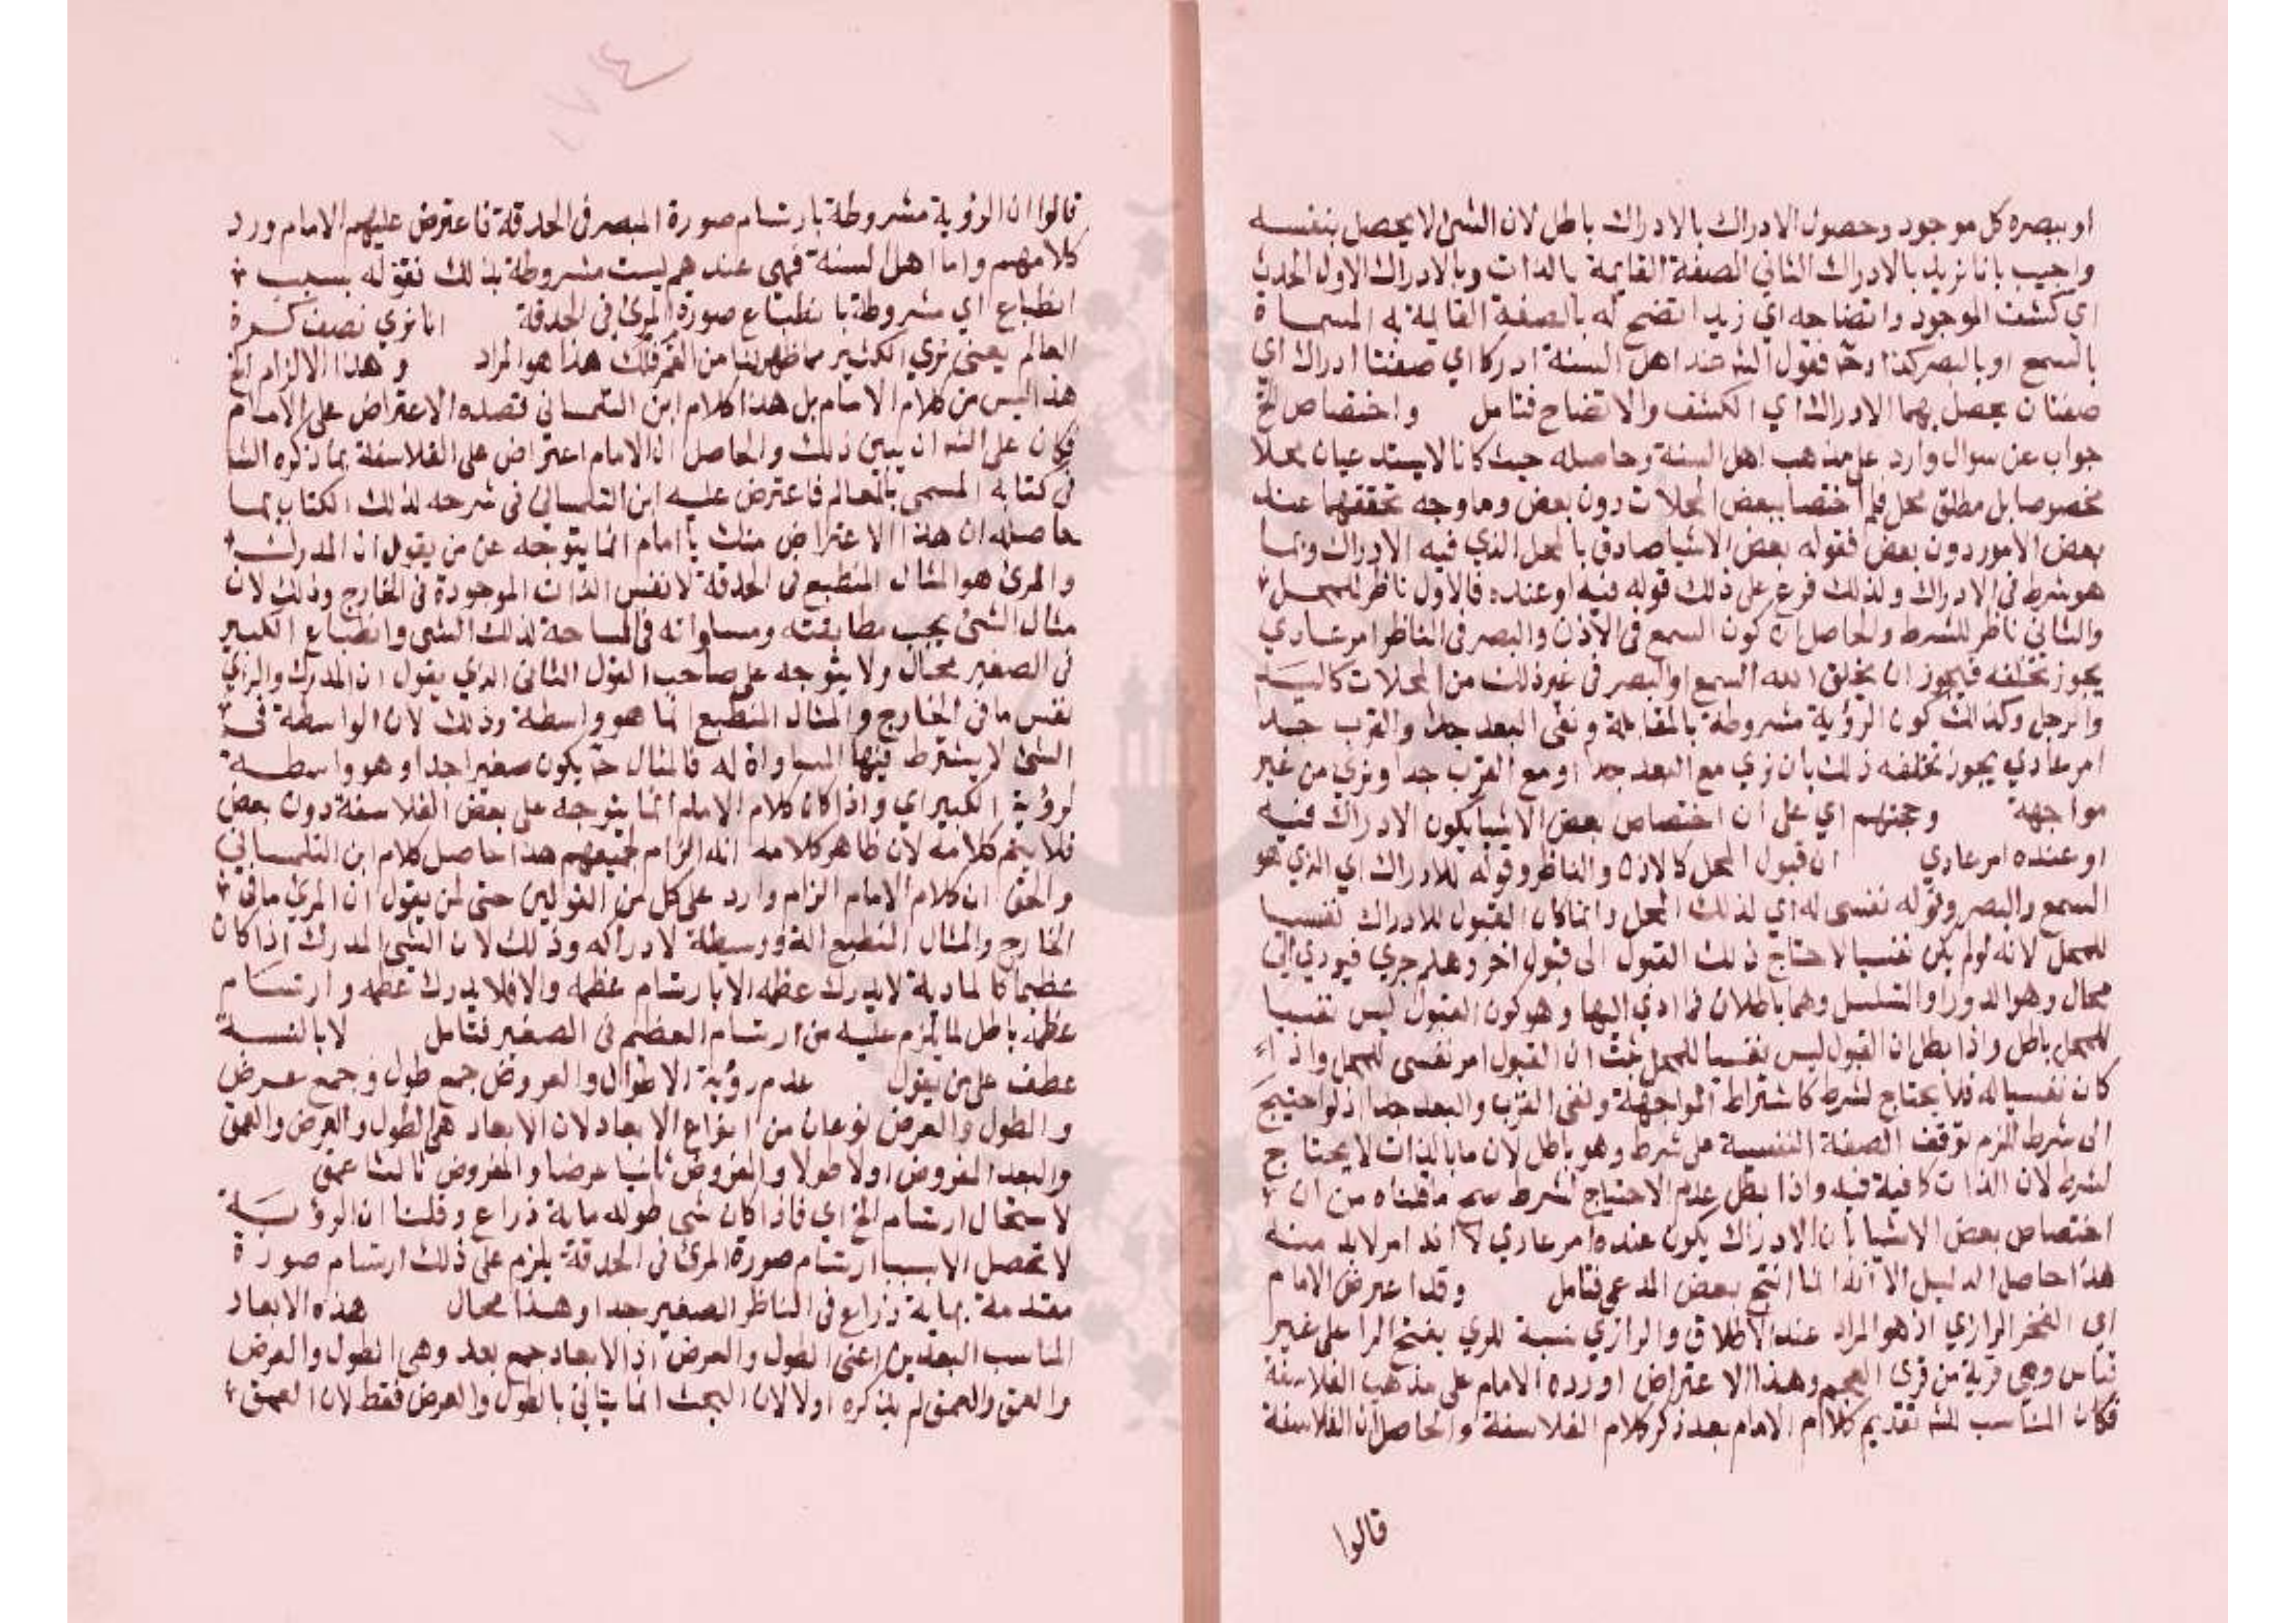 او ببصره كل موجود وحصول الادراك بالادراك باطل لان الشئ لا يحصل بنفسه
واجيب بانا نريد بالادراك الثاني الصفة القايمة بالذات وبالادراك الاول الحدث
اي كشف الموجود واتضاحه اي زيد اتضح له بالصفة القايمة به المسماة
بالسمع او بالبصر كذا وح فقول الشه عند اهل السنة ادركا اي صفتا ادراك اي
صفتان يحصل بهما الادراك اي الكشف والاتضاح فتامل واختصاص الخ
جواب عن سوال وارد على مذهب اهل السنة وحاصله حيث كانا لا يستدعيان محلا
مخصوصا بل مطلق محل فلم اختصا ببعض المحلات دون بعض وما وجه تحققهما عند
بعض الامور دون بعض فقوله بعض الاشيا صادق بالمحل الذي فيه الادراك وبما
هو شرط في الادراك ولذلك فرع على ذلك قوله فيه او عنده فالاول ناظر للمحل
والثاني ناظر للشرط والحاصل ان كون السمع في الاذن والبصر في الناظر امر عادي
يجوز تخلفه فيجوز ان يخلق الله السمع والبصر في غير ذلك من المحلات كاليد
والرجل وكذلك كون الرؤية مشروطة بالمقابلة ونفي البعد جدا والقرب جدا
امر عادي يجوز تخلفه ذلك بان نري مع البعد جدا او مع القرب جدا ونري من غير
مواجهة وحجتهم اي على ان اختصاص بعض الاشيا بكون الادراك فيه
او عنده امر عادي ان قبول المحل كالاذن والناظر وقوله للادراك اي الذي هو
السمع والبصر وقوله نفسى له اي لذلك المحل وانما كان القبول للادراك نفسيا
للمحل لانه لو لم يكن نفسيا لاحتاج ذلك القبول الى قبول اخر وهلم جري فيودي الى
محال وهو الدور او التسلسل وهما باطلان فما ادي اليها وهو كون القبول ليس نفسيا
للمحل باطل واذا بطل ان القبول ليس نفسيا للمحل ثبت ان القبول امر نفسى للمحل واذا
كان نفسيا له فلا يحتاج لشرط كاشتراط المواجهة ونفى القرب والبعد جدا اذ لو احتيج
الى شرط للزم توقف الصفة النفسية على شرط وهو باطل لان ما بالذات لا يحتاج
لشرط لان الذات كافية فيه واذا بطل عدم الاحتياج لشرط صح ما قلناه من ان
اختصاص بعض الاشيا بان الادراك يكون عنده امر عادي لا انه امر لابد منه
هذا حاصل الدليل الا انه انما انتج بعض المدعي فتامل وقد اعترض الامام
اي الفخر الرازي اذ هو المراد عند الاطلاق والرازي نسبة للري بفتح الرا على غير
قياس وهي قرية من قرى العجم وهذا الاعتراض اورده الامام على مذهب الفلاسفة
فكان المناسب للشه تقديم كلام الامام بعد ذكر كلام الفلاسفة والحاصل ان الفلاسفة
قالوا
قالوا ان الرؤية مشروطة بارتسام صورة المبصر في الحدقة فاعترض عليهم الامام ورد
كلامهم واما اهل السنة فهى عندهم ليست مشروطة بذلك فقوله بسبب
انطباع اي مشروطة بانطباع صورة المرئ في الحدقة انا نري نصف كرة
العالم يعنى نري الكثير مما ظهر لنا من الفلك هذا هو المراد وهذا الالزام الخ
هذا ليس من كلام الامام بل هذا كلام ابن التلمساني قصده الاعتراض على الامام
فكان على الشه ان يبين ذلك والحاصل ان الامام اعتراض على الفلاسفة بما ذكره الشا
في كتابه المسمى بالمعالم فاعترض عليه ابن التلمساني في شرحه لذلك الكتاب بما
حاصله ان هذا الاعتراض منك يا امام انما يتوجه عن من يقول ان المدرك
والمرئ هو المثال المنطبع في الحدقة لا نفس الذات الموجودة في الخارج وذلك لان
مثال الشئ يجب مطابقته ومساواته في المساحة لذلك الشى وانطباع الكبير
في الصغير محال ولا يتوجه على صاحب القول الثاني الذي يقول ان المدرك والراي
نفس ما في الخارج والمثال المنطبع انما هو واسطة وذلك لان الواسطة في
الشئ لا يشترط فيها المساواة له فالمثال ح يكون صغيرا جدا وهو واسطة
لرؤية الكبير اي واذا كان كلام الامام انما يتوجه على بعض الفلاسفة دون بعض
فلا يتم كلامه لان ظاهر كلامه انه الزام لجميعهم هذا حاصل كلام ابن التلمساني
والحق ان كلام الامام الزام وارد على كل من القولين حتى لمن يقول ان المرئ ما في
الخارج والمثال المنطبع الة ووسيطة لادراكه وذلك لان الشئ المدرك اذا كان
عظيما كالمادبة لا يدرك عظمه الا بارتسام عظمه والا فلا يدرك عظمه وارتسام
عظمه باطل لما يلزم عليه من ارتسام العظم في الصغير فتامل لا بالنسبة
عطف على من يقول عدم رؤية الاطوال والعروض جمع طول وجمع عرض
والطول والعرض نوعان من انواع الابعاد لان الابعاد هي الطول والعرض والعمق
والبعد المفروض اولا طولا والمفروض ثانيا عرضا والمفروض ثالثا عمق
لاستحال ارتسام الخ اي فاذا كان شى طوله ماية ذراع وقلنا ان الرؤية
لا تحصل الا بسبب ارتسام صورة المرئ في الحدقة يلزم على ذلك ارتسام صورة
مقدمة بماية ذراع في الناظر الصغير جدا وهذا محال هذه الابعاد
المناسب البعدين اعنى الطول والعرض اذ الابعاد جمع بعد وهى الطول والعرض
والعمق والعمق لم يذكره اولا لان البحث انما يتاتى بالطول والعرض فقط لان العمق